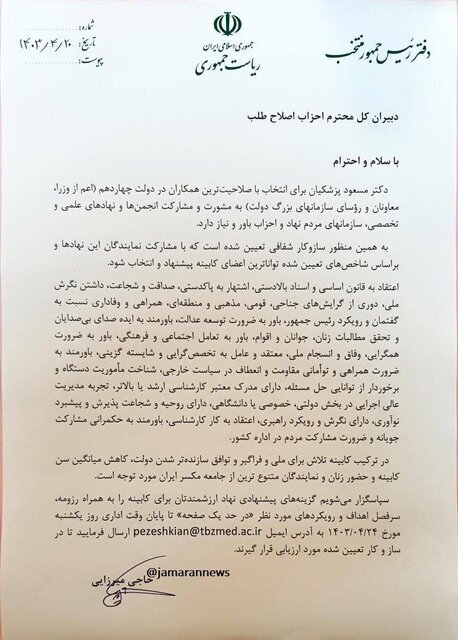 جمهوری اسلامی ایران
ریاست جمهوری
دفتر رئیس جمهور منتخب
شماره:
تاریخ: ۱۴۰۳/۴/۲۰
پیوست:
دبیران کل محترم احزاب اصلاح طلب
با سلام و احترام
دکتر مسعود پزشکیان برای انتخاب با صلاحیت‌ترین همکاران در دولت چهاردهم (اعم از وزرا،
معاونان و رؤسای سازمانهای بزرگ دولت) به مشورت و مشارکت انجمن‌ها و نهادهای علمی و
تخصصی، سازمانهای مردم نهاد و احزاب باور و نیاز دارد.
به همین منظور سازوکار شفافی تعیین شده است که با مشارکت نمایندگان این نهادها و
براساس شاخص‌های تعیین شده تواناترین اعضای کابینه پیشنهاد و انتخاب شود.
اعتقاد به قانون اساسی و اسناد بالادستی، اشتهار به پاکدستی، صداقت و شجاعت، داشتن نگرش
ملی، دوری از گرایش‌های جناحی، قومی، مذهبی و منطقه‌ای، همراهی و وفاداری نسبت به
گفتمان و رویکرد رئیس جمهور، باور به ضرورت توسعه عدالت، باورمند به ایده صدای بی‌صدایان
و تحقق مطالبات زنان، جوانان و اقوام، باور به تعامل اجتماعی و فرهنگی، باور به ضرورت
همگرایی، وفاق و انسجام ملی، معتقد و عامل به تخصص‌گرایی و شایسته گزینی، باورمند به
ضرورت همراهی و توأمانی مقاومت و انعطاف در سیاست خارجی، شناخت مأموریت دستگاه و
برخوردار از توانایی حل مسئله، دارای مدرک معتبر کارشناسی ارشد یا بالاتر، تجربه مدیریت
عالی اجرایی در بخش دولتی، خصوصی یا دانشگاهی، دارای روحیه و شجاعت پذیرش و پیشبرد
نوآوری، دارای نگرش و رویکرد راهبری، اعتقاد به کار کارشناسی، باورمند به حکمرانی مشارکت
جویانه و ضرورت مشارکت مردم در اداره کشور.
در ترکیب کابینه تلاش برای ملی و فراگیر و توافق سازنده‌تر شدن دولت، کاهش میانگین سن
کابینه و حضور زنان و نمایندگان متنوع ترین از جامعه مکسر ایران مورد توجه است.
سپاسگزار می‌شویم گزینه‌های پیشنهادی نهاد ارزشمندتان برای کابینه را به همراه رزومه،
سرفصل اهداف و رویکردهای مورد نظر «در حد یک صفحه» تا پایان وقت اداری روز یکشنبه
مورخ ۱۴۰۳/۰۴/۲۴ به آدرس ایمیل pezeshkian@tbzmed.ac.ir ارسال فرمایید تا در
ساز و کار تعیین شده مورد ارزیابی قرار گیرند.
@jamarannews
حاجی میرزایی